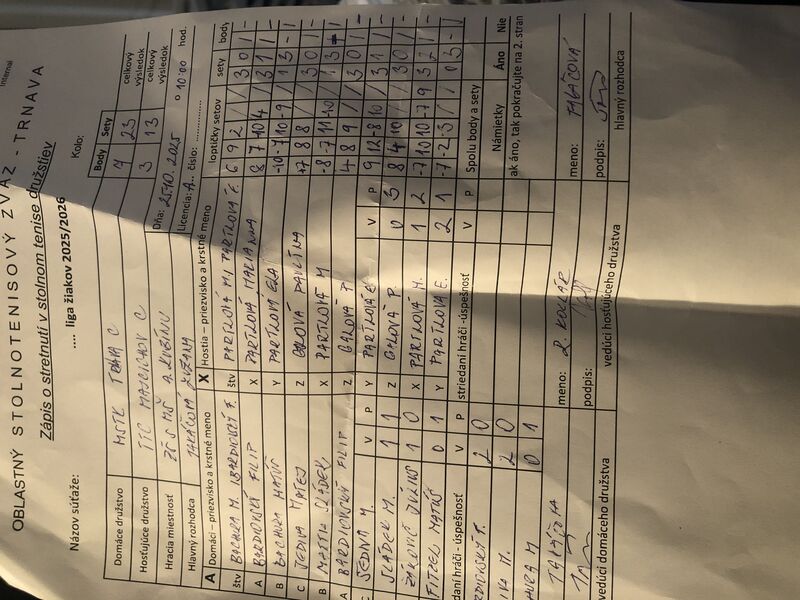 Internal
OBLASTNÝ STOLNOTENISOVÝ ZVÄZ - TRNAVA
Zápis o stretnutí v stolnom tenise družstiev
Názov súťaže: .... liga žiakov 2025/2026 Kolo:
Body Sety
Domáce družstvo MSTK TRNAVA C 7 23 celkový výsledok
Hosťujúce družstvo TTC MAJCICHOV C 3 13 celkový výsledok
Hracia miestnosť ZŠ S MŠ A. KUBINU Dňa: 25.10.2025 o 10:00 hod.
Hlavný rozhodca ZUZANA Licencia: A.. číslo: ..............
A Domáci – priezvisko a krstné meno X Hostia – priezvisko a krstné meno loptičky setov sety body
štv BACHURA M. BARDIOVSKÝ F. štv PARTLOVÁ M, PARTLOVÁ E. 6 9 2 / / 3 0 1 -
A BARDIOVSKÝ FILIP X PARTLOVÁ 8 7 10 4 / 3 1 1 -
B BACHURA MATÚŠ Y PARTLOVÁ ELA -10 -7 10 -9 / 1 3 - 1
C JEDINA MATEJ Z GALOVÁ PAULÍNA 7 8 8 / / 3 0 1 -
B SLÁDEK X PARTLOVÁ M -8 -7 11 -10 / 1 3 - 1
A BARDIOVSKÝ FILIP Z GALOVÁ P. 4 8 9 / / 3 0 1 -
C JEDINA M. Y PARTLOVÁ E. 9 12 -8 10 / 3 1 1 -
V P V P
SLÁDEK M. 1 1 Z GALOVÁ P. 0 3 8 4 10 / / 3 0 1 -
1 0 X PARTLOVÁ M. 1 2 -7 10 10 -7 9 3 2 1 -
MATÚŠ 0 1 Y PARTLOVÁ E. 2 1 -7 -2 -5 / / 0 3 - 1
striedaní hráči - úspešnosť V P striedaní hráči -úspešnosť V P Spolu body a sety
2 0 Námietky Áno Nie
2 0 ak áno, tak pokračujte na 2. stran
0 1
meno: R. KOLLÁR meno: TAKÁČOVÁ
podpis: podpis:
vedúci domáceho družstva vedúci hosťujúceho družstva hlavný rozhodca